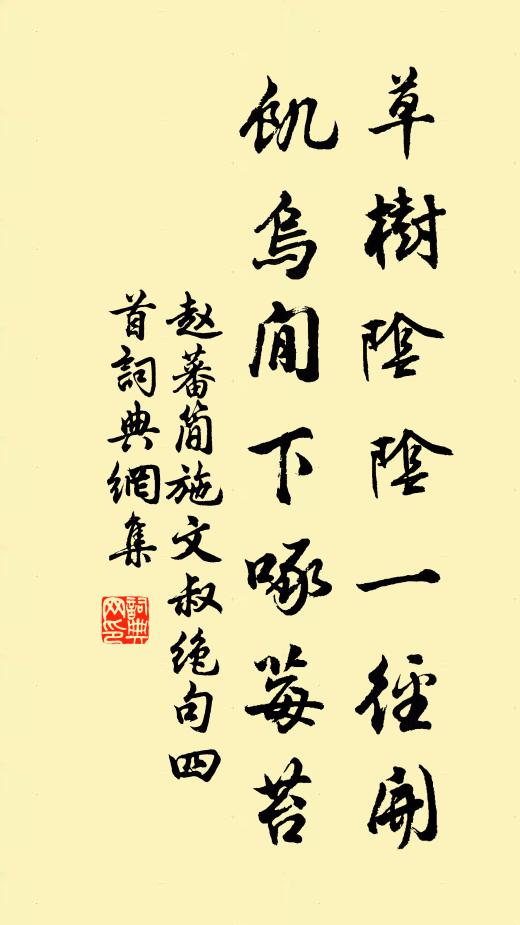 草樹陰陰一徑開
飢烏閒下啄莓苔
赵蕃簡施文叔绝句四
首詞典網集
詞典
网印